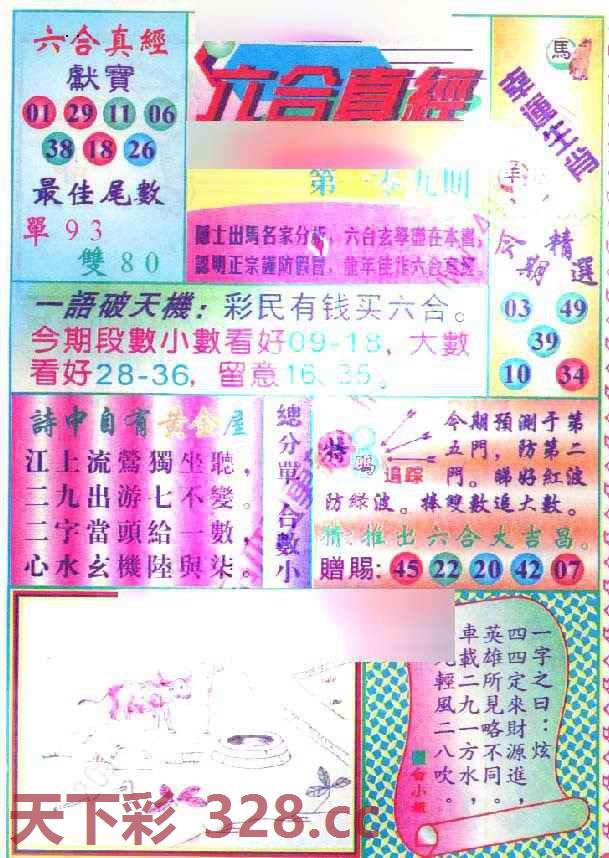 六合真經
獻寶
01 29 11 06
38 18 26
最佳尾數
單 93
雙 80
六合真經
馬
幸運生肖
羊
第一零九期
隱士出馬名家分析，六合玄學盡在本書，
認明正宗謹防假冒，龍年佳作六合真經。
今期精選
03 49
39
10 34
一語破天機：彩民有钱买六合。
今期段數小數看好09-18，大數
看好28-36，留意16.35。
詩中自有黃金屋
江上流鶯獨坐聽，
二九出游七不變。
二字當頭給一數，
心水玄機陸與柒。
總分單 合數小
特
碼
追踪
今期預測于第
五門，防第二
門。睇好紅波
防綠波。捧雙數追大數。
猜：推出六合大吉昌。
贈賜：45 22 20 42 07
一字之曰：炫
四四定來財源進，
英雄所見略不同。
車載二九一方水，
輕風二八吹。
天下彩 328.cc